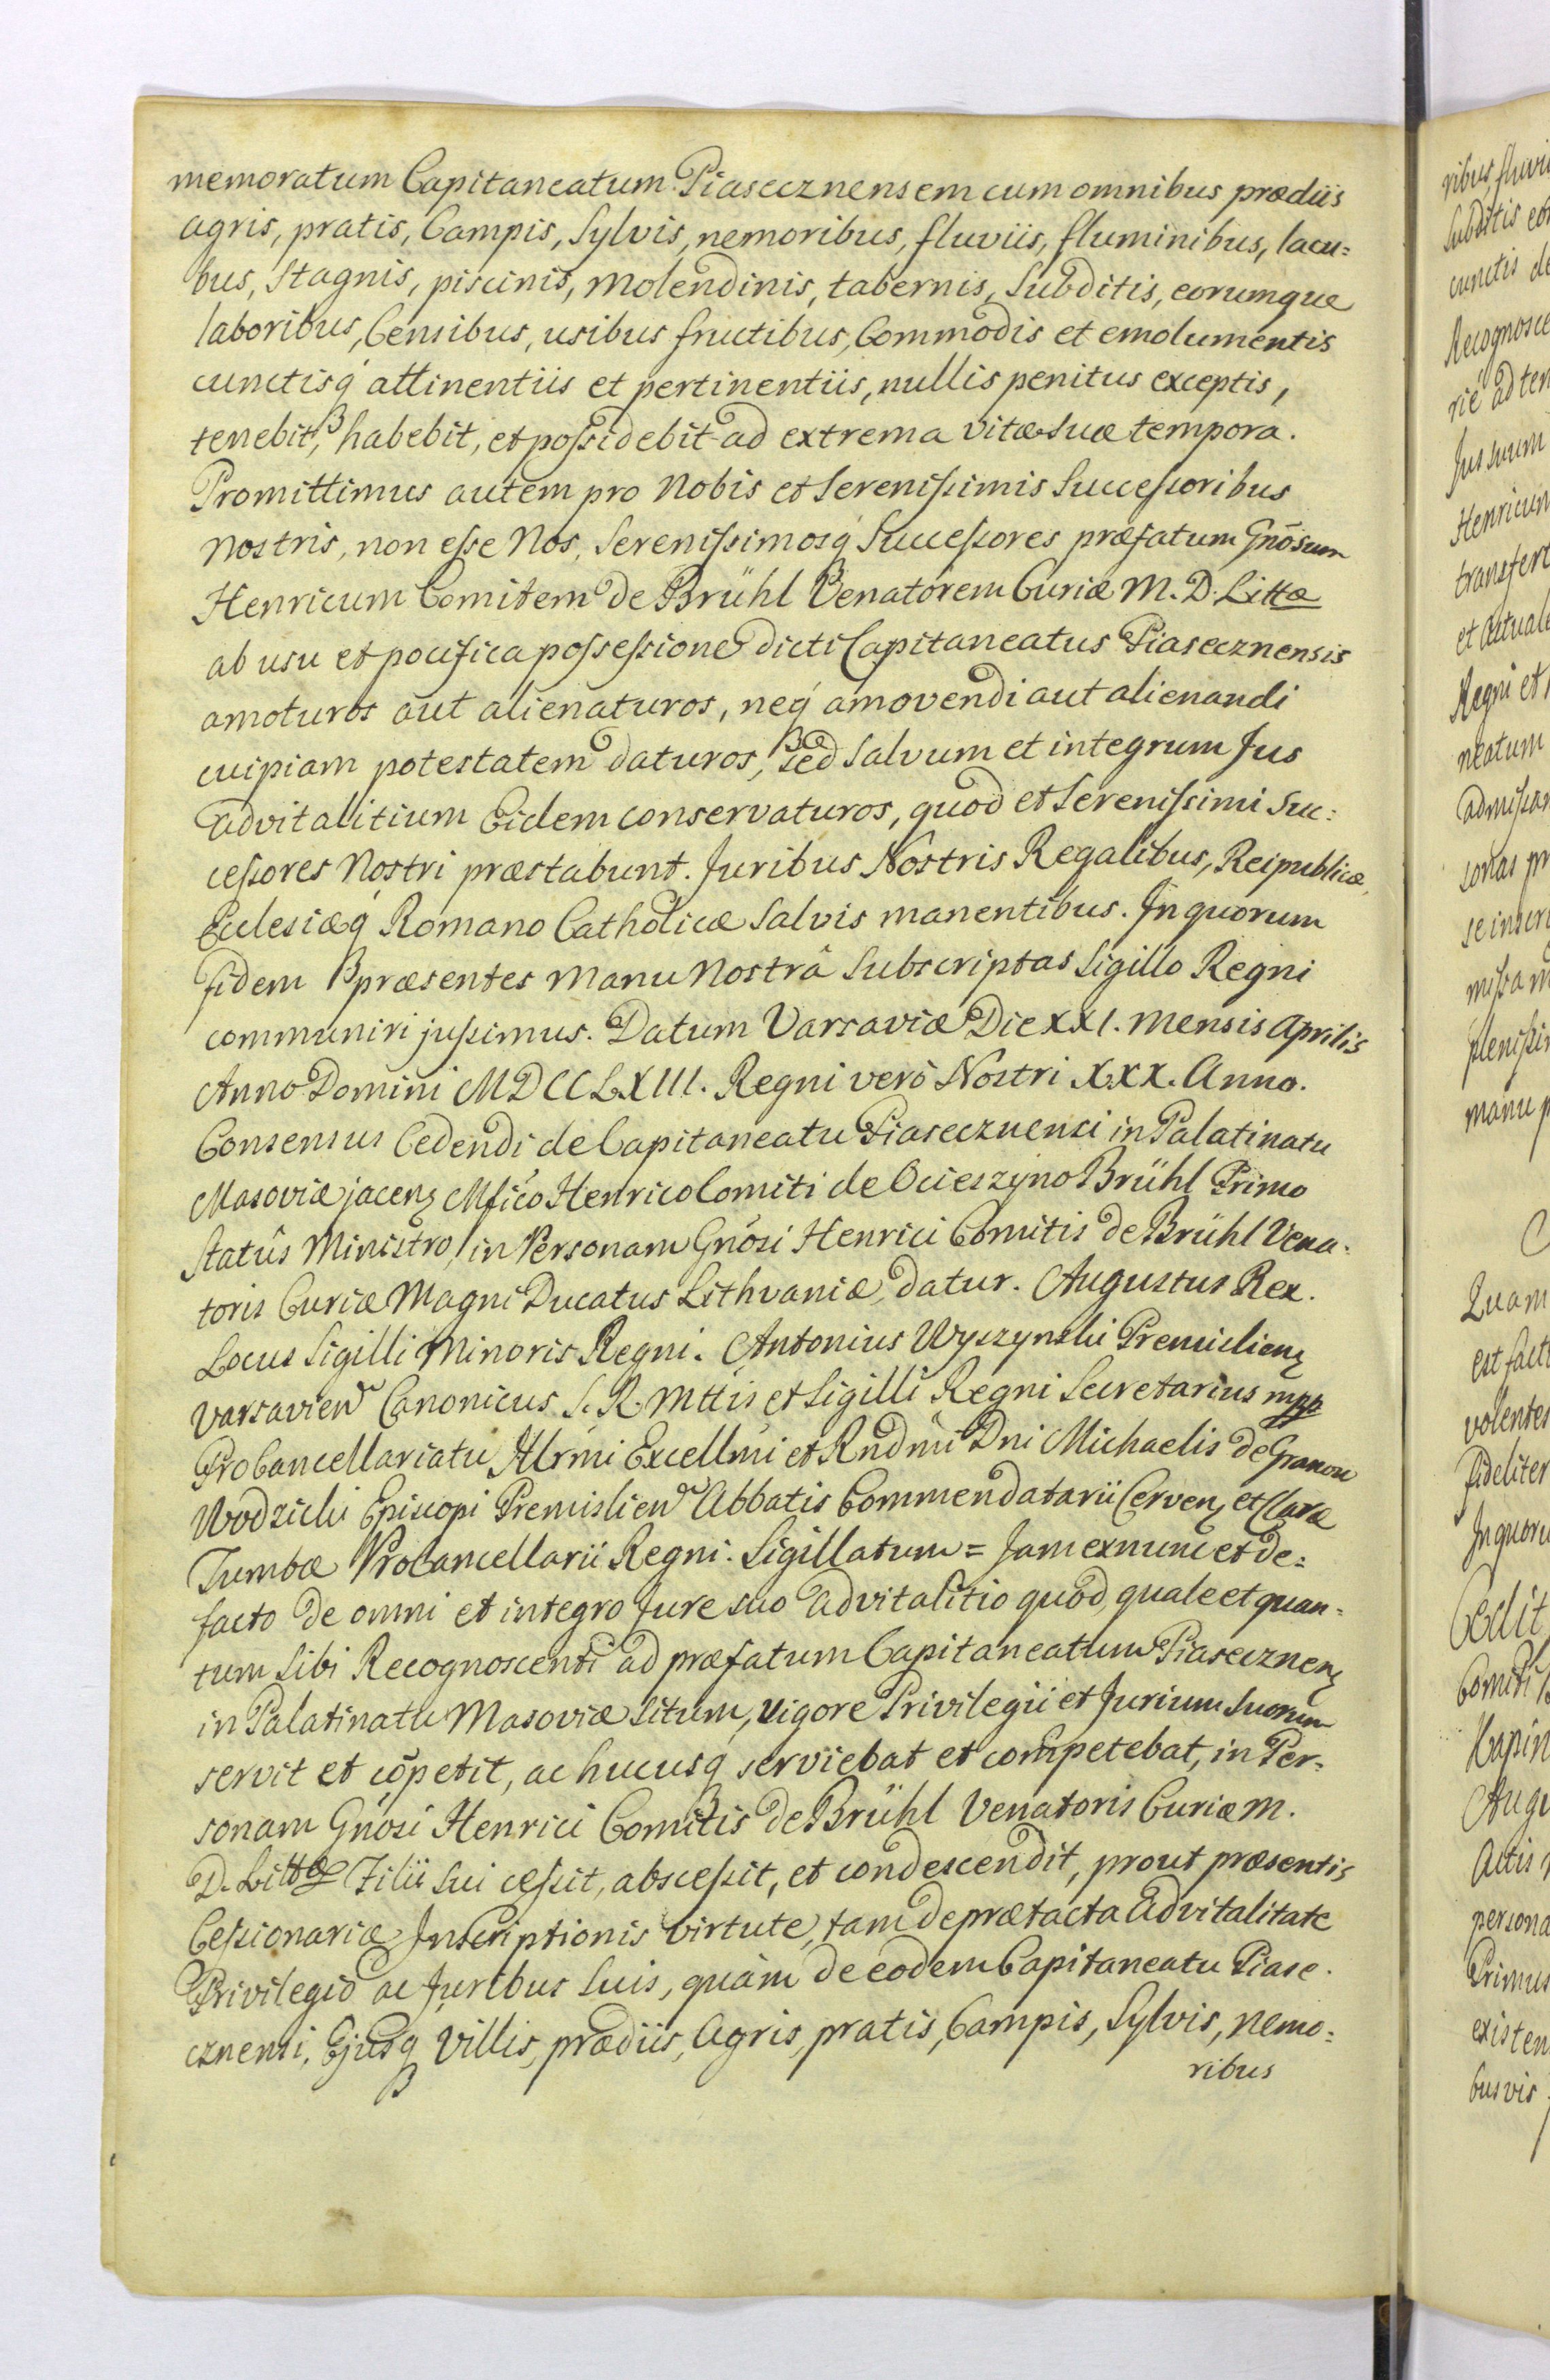 memoratum Capitaneatum Piasecznensem cum omnibus prædiis
agris, pratis, Campis, Sylvis, nemoribus, fluviis, fluminibus, lacu=
bus, Stagnis, piscinis, Molendinis, tabernis, Subditis, eorumque
laboribus, Censibus, usibus fructibus, Commodis et emolumentis
cunctisq́ attinentiis et pertinentiis, nullis penitus exceptis,
tenebit, habebit, et poſsidebit ad extrema vitæ suæ tempora.
Promittimus autem pro Nobis et Sereniſsimis Succeſsoribus
Nostris, non eſse Nos, Sereniſsimosq́ Succeſsores præfatum Gnōsum
Henricum Comitem de Brühl Venatorem Curiæ M. D. Littæ
ab usu et pocifica poſseſsione dicti Capitaneatus Piasecznensis
amoturos aut alienaturos, neq́ amovendi aut alienandi
cuipiam potestatem daturos, sed Salvum et integrum Jus
advitalitium Eidem conservaturos, quod et Sereniſsimi Suc=
ceſsores Nostri præstabunt. Juribus Nostris Regalibus, Reipublicæ,
Eclesiæq́ Romano Catholicæ Salvis manentibus. In quorum
fidem præsentes Manu Nostrâ Subscriptas Sigillo Regni
communiri juſsimus. Datum Varsaviæ Die XXI. Mensis Aprilis
Anno Domini MDCCLXIII. Regni verò Nostri XXX. Anno.
Consensus Cedendi de Capitaneatu Piasecznensi in Palatinatu
Masoviæ jacenȝ Mfico Henrico Comiti de Ocieszyno Brühl Primo
Statûs Ministro, in Personam Gnósi Henrici Comitis de Brühl Vena=
toris Curiæ Magni Ducatus Lithvaniæ, datur. Augustus Rex.
Locus Sigilli Minoris Regni. Antonius Wyszynski Premislienȝ
Varsavien Canonicus S. R. Mttis et Sigilli Regni Secretarius mpp
Pro Cancellariatu Illrmi Excellmi et Rndmi Dni Michaelis de Granow
Wodzicki Episcopi Premislien Abbatis Commendatarii Cervenȝ et Claræ
Tumbæ Procancellarii Regni. Sigillatum = Jam exnunc et de=
facto de omni et integro Jure suo advitalitio quod, quale et quan=
tum Sibi Recognoscenti ad præfatum Capitaneatum Piasecznenȝ
in Palatinatu Masoviæ situm, vigore Privilegii et Jurium Suorum
servit et cōpetit, ac hucusq́ serviebat et competebat, in Per=
sonam Gnósi Henrici Comitis de Brühl Venatoris Curiæ M.
D. Littæ Filii Sui ceſsit, absceſsit, et condescendit, prout præsentis
Ceſsionariæ Inscriptionis virtute, tam de prætacta Advitalitate
Privilegio ac Juribus Suis, quàm de eodem Capitaneatu Piase=
cznensi, Ejusq́ Villis, prædiis, Agris, pratis, Campis, Sylvis, nemo=
ribus